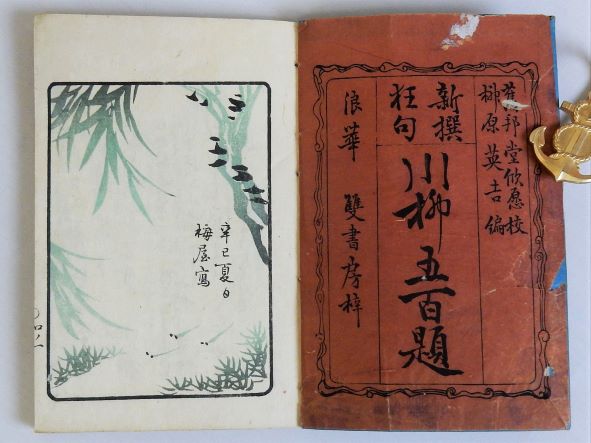 邦堂攸愿校
柳原英吉編
新撰
狂句
川柳五百題
浪華 雙書房梓
辛巳夏日
梅屋寫